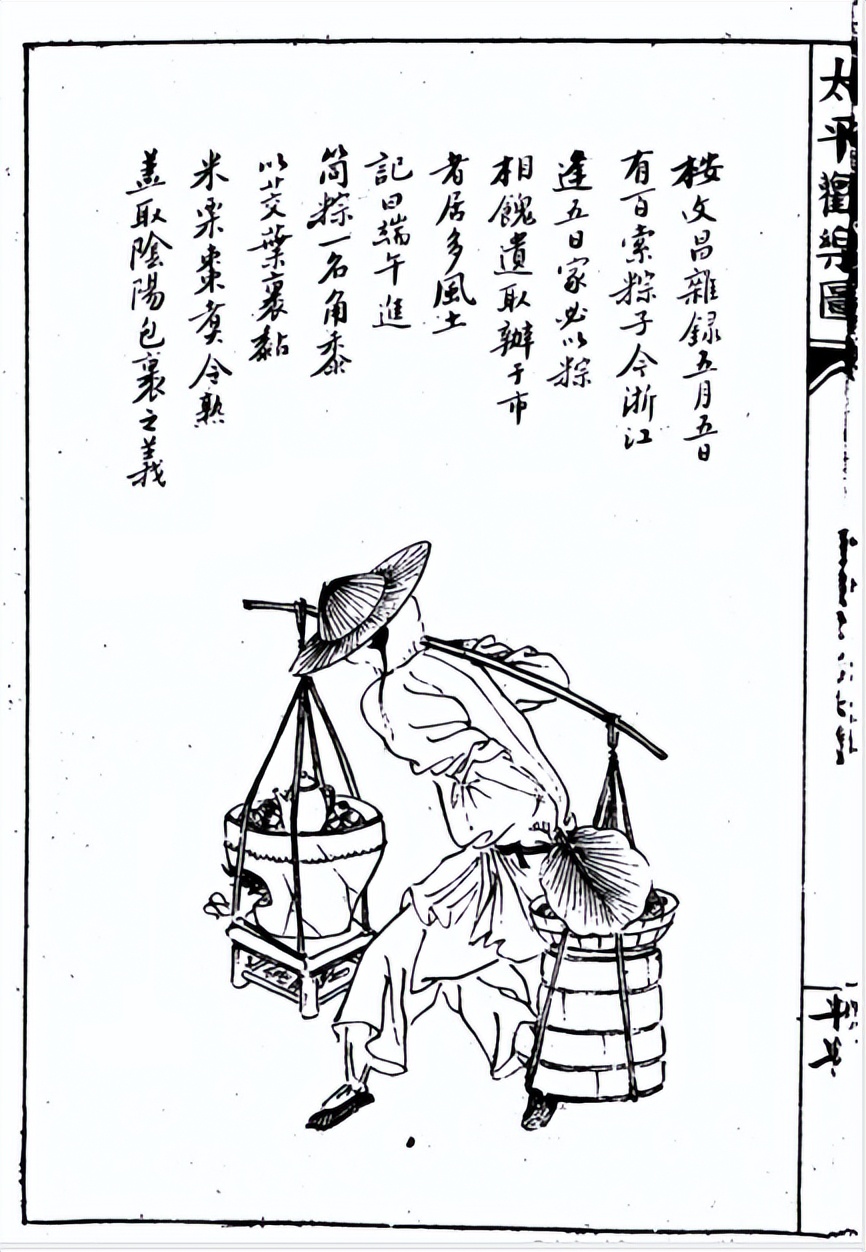 按文昌雜録五月五日
有百索粽子今浙江
逢五日家必以粽
相餽遺取辦于市
者居多風土
記曰端午進
筒粽一名角黍
以菰葉裹黏
米栗棗煮令熟
蓋取陰陽包裹之義
太平歡樂圖